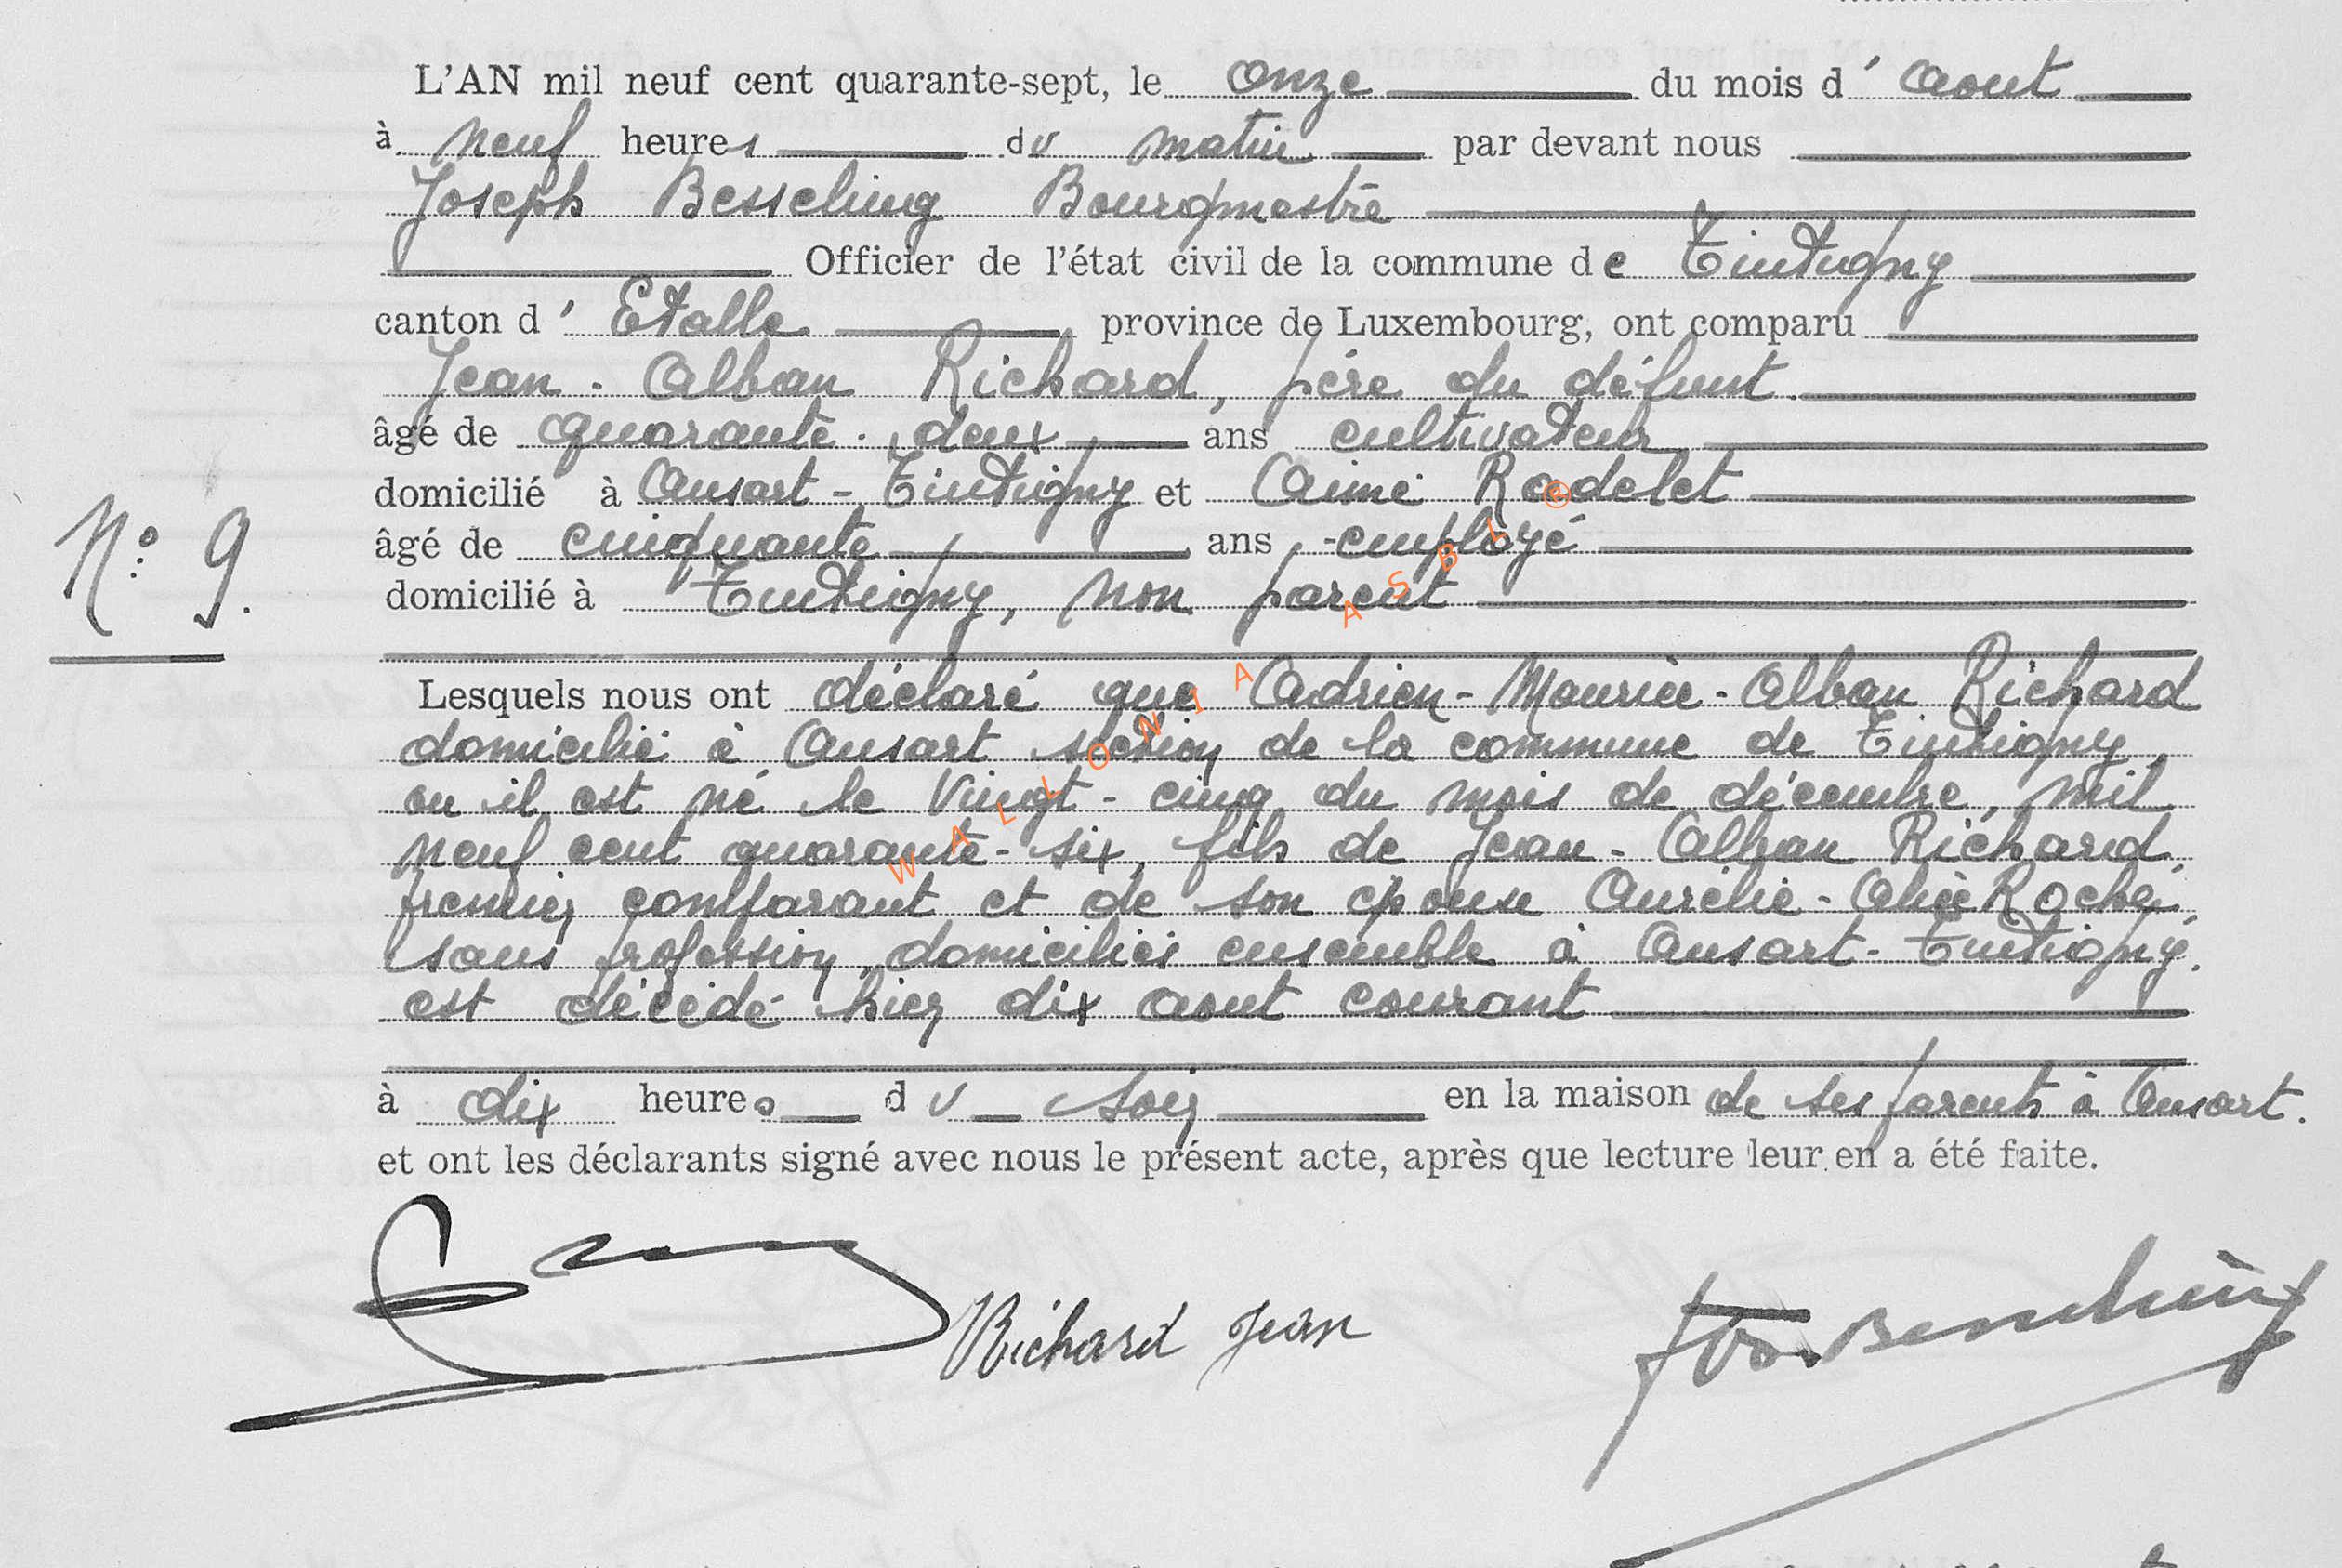 L'AN mil neuf cent quarante-sept, le onze du mois d' aout
à neuf heures du matin par devant nous
Joseph Besseling Bourgmestre
Officier de l'état civil de la commune de Tintigny
canton d' Etalle province de Luxembourg, ont comparu
Jean-Alban Richard, père du défunt.
âgé de quarante-deux ans cultivateur
domicilié à Ansart-Tintigny et Aimé Rodelet
âgé de cinquante ans employé
domicilié à Tintigny, non parent
N° 9.
Lesquels nous ont déclaré que Adrien-Maurice-Alban Richard
domicilié à Ansart section de la commune de Tintigny
ou il est né le vingt-cinq du mois de décembre, mil
neuf cent quarante-six, fils de Jean-Alban Richard
premier comparant et de son épouse Aurélie-Alice Roche,
sans profession, domiciliés ensemble à Ansart-Tintigny.
est décédé hier dix aout courant
à dix heures du soir en la maison de ses parents à Ansart.
et ont les déclarants signé avec nous le présent acte, après que lecture leur en a été faite.
Richard Jean
Jos. Besseling
WALLONIA ASBL ®